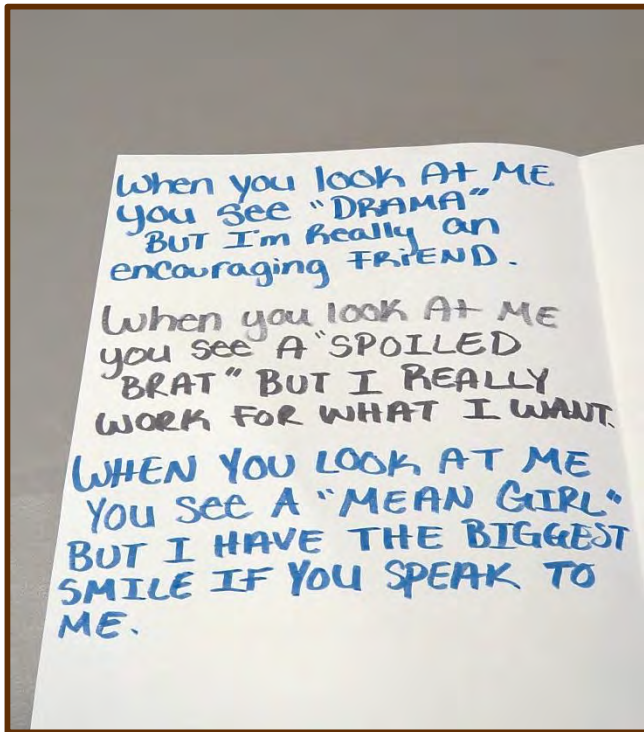 When you look At ME
you see "DRAMA"
BUT I'm Really an
encouraging FRiEND.
When you look At ME
you see A "SPOILED
BRAT" BUT I REALLY
WORK FOR WHAT I WANT.
WHEN YOU LOOK AT ME
YOU See A "MEAN GIRL"
BUT I HAVE THE BIGGEST
SMILE IF YOU SPEAK TO
ME.